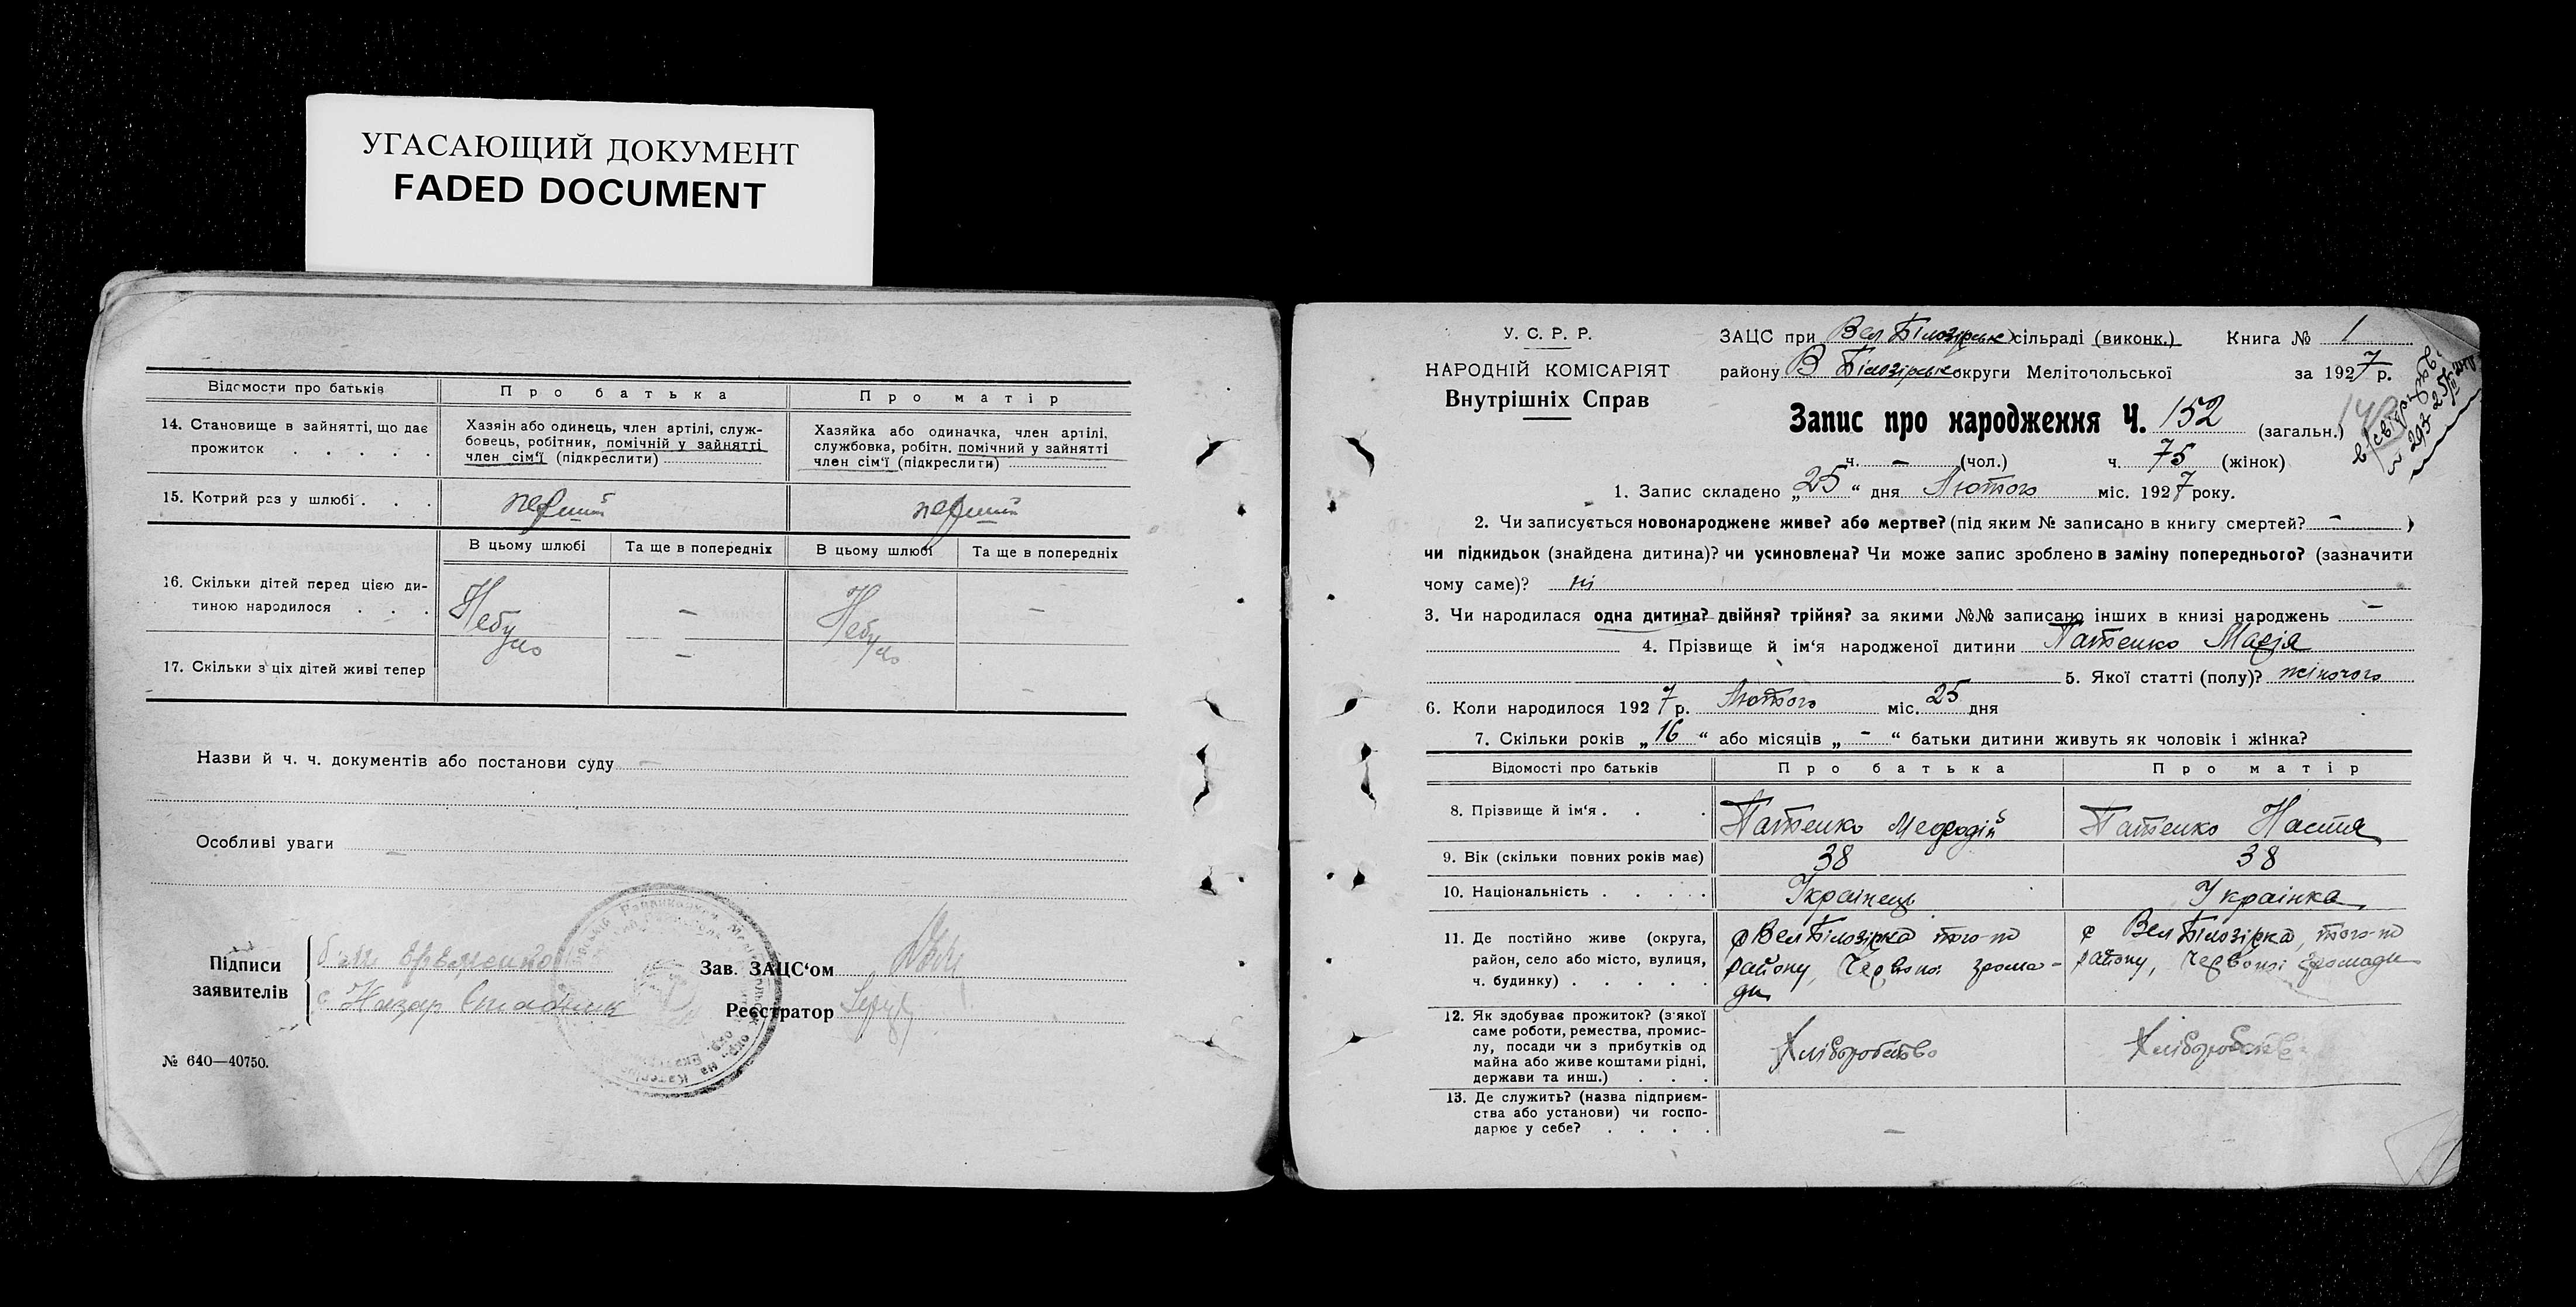 УГАСАЮЩИЙ ДОКУМЕНТ
FADED DOCUMENT
Відомости про батьків
Про батька
Про матір
14. Становище в зайнятті, що дає прожиток . . . . .
Хазяїн або одинець, член артілі, служ-
бовець, робітник, помічній у зайнятті
член сім'ї (підкреслити)
Хазяйка або одиначка, член артілі,
службовка, робітн. помічний у зайнятті
член сім'ї (підкреслити)
15. Котрий раз у шлюбі . . .
перший
перший
В цьому шлюбі
Та ще в попередніх
В цьому шлюбі
Та ще в попередніх
16. Скільки дітей перед цією ди-
тиною народилося . . .
Небуло
–
Небуло
–
17. Скільки з ціх дітей живі тепер
–
–
Назви й ч. ч. документів або постанови суду –
Особливі уваги –
Підписи
заявителів
Назар
Зав. ЗАЦС'ом
Реєстратор
№ 640—40750.
У. С. Р. Р.
НАРОДНІЙ КОМІСАРІЯТ
Внутрішніх Справ
ЗАЦС при Вел Білозірське сільраді (виконк.) Книга № 1
району В Білозірське округи Мелітопольської за 1927 р.
Запис про народження Ч. 152 (загальн.)
ч. – (чол.) ч. 75 (жінок)
1. Запис складено „25“ дня Лютого міс. 1927 року.
2. Чи записується новонароджене живе? або мертве? (під яким № записано в книгу смертей? – )
чи підкидьок (знайдена дитина)? чи усиновлена? Чи може запис зроблено в заміну попереднього? (зазначити
чому саме)? ні
3. Чи народилася одна дитина? двійня? трійня? за якими №№ записано інших в книзі народжень –
4. Прізвище й ім'я народженої дитини Патенко Марія
5. Якої статті (полу)? жіночого
6. Коли народилося 1927 р. Лютого міс. 25 дня
7. Скільки років „16“ або місяців „–“ батьки дитини живуть як чоловік і жінка?
Відомості про батьків
Про батька
Про матір
8. Прізвище й ім'я . . .
Патенко Мефодій
Патенко Настя
9. Вік (скільки повних років має)
38
38
10. Національність . . . . .
Українець
Українка
11. Де постійно живе (округа,
район, село або місто, вулиця,
ч. будинку) . . . . .
с Вел Білозірка того-по
району, Червоної грома-
ди
с Вел Білозірка, того-по
району, Червоної громади
12. Як здобуває прожиток? (з якої
саме роботи, ремества, промис-
лу, посади чи з прибутків од
майна або живе коштами рідні,
держави та инш.) . . .
Хліборобство
Хліборобство
13. Де служить? (назва підприєм-
ства або установи) чи госпо-
дарює у себе? . . . .
–